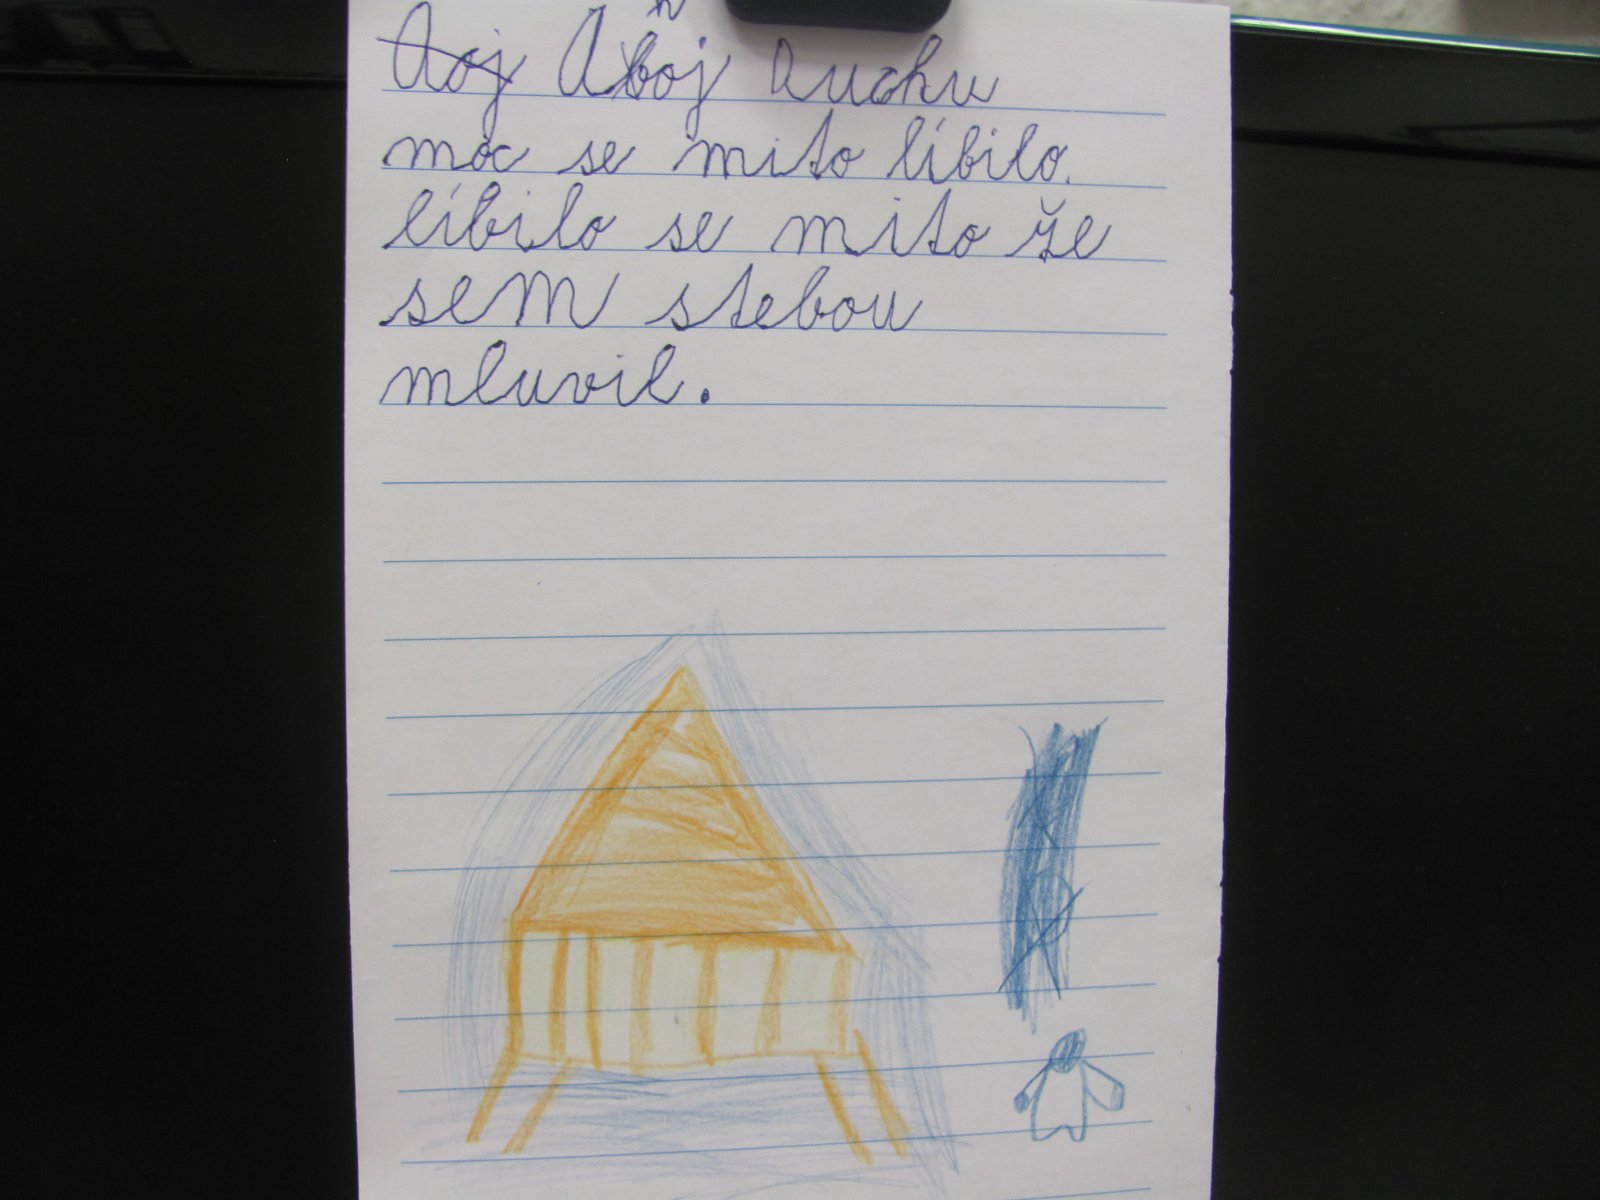 Aoj Ahoj Duchu
moc se mito líbilo.
líbilo se mito že
sem stebou
mluvil.